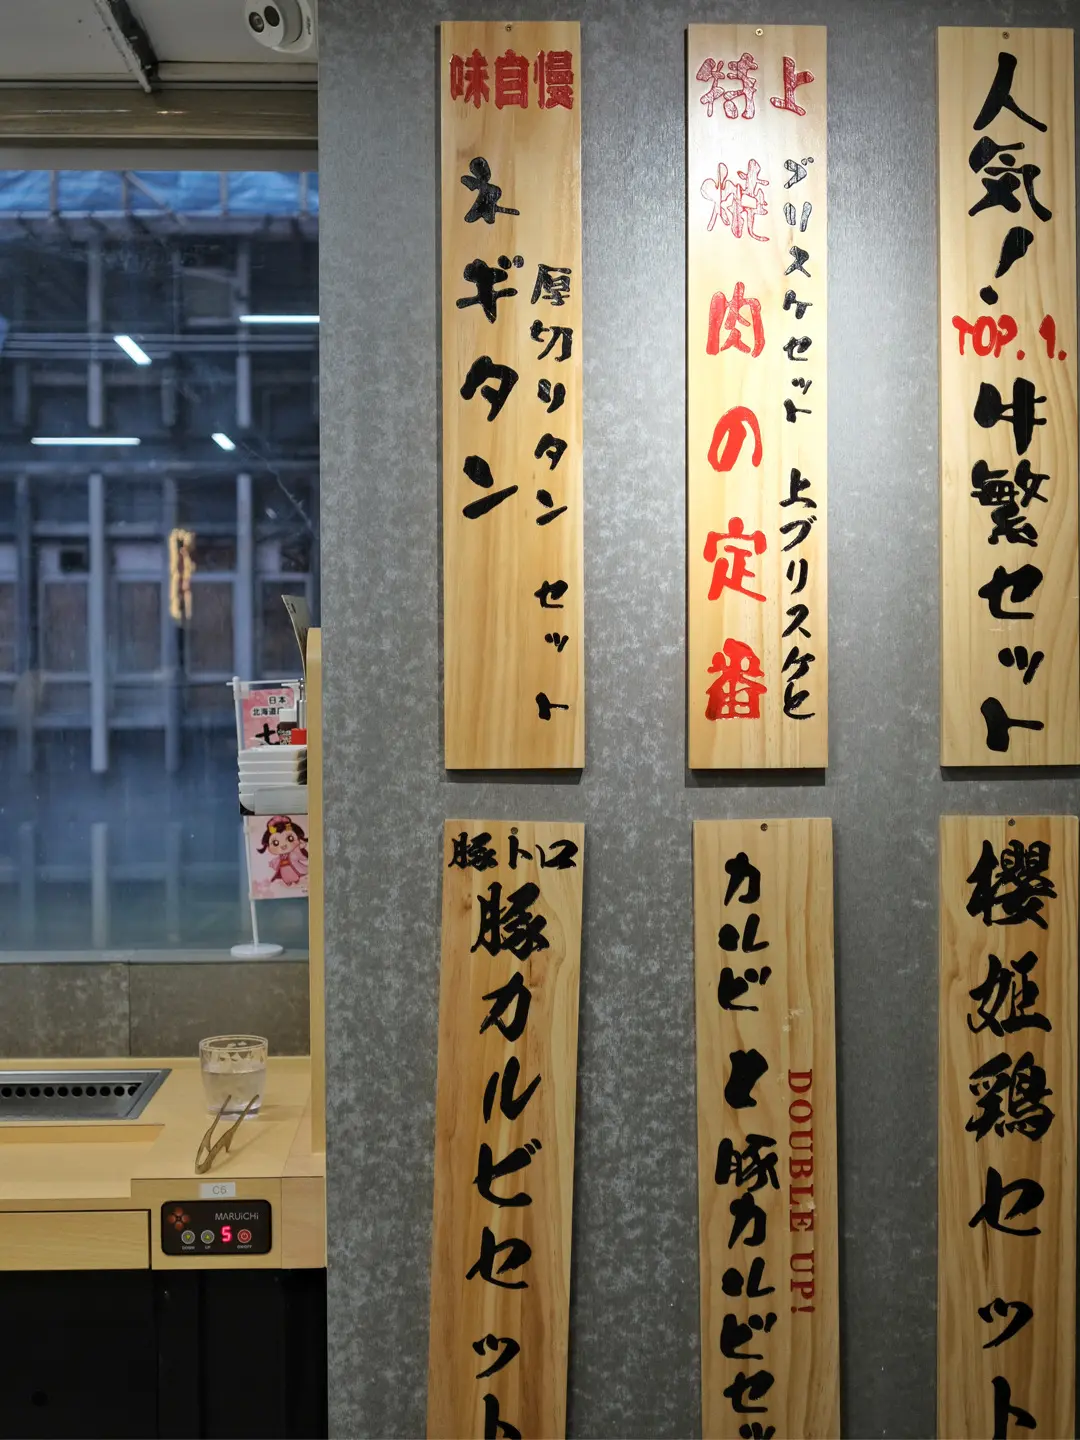 味自慢
ネギタン
厚切りタン セット
特上
焼肉の定番
ブリスケセット 上ブリスケと
人気!
TOP.1.
牛繁セット
豚トロ
豚カルビセット
カルビと豚カルビセッ
DOUBLE UP!
櫻姫鶏セット
日本
北海道
七
C6
MARUiCHi
DOWN
UP
5
ON/OFF